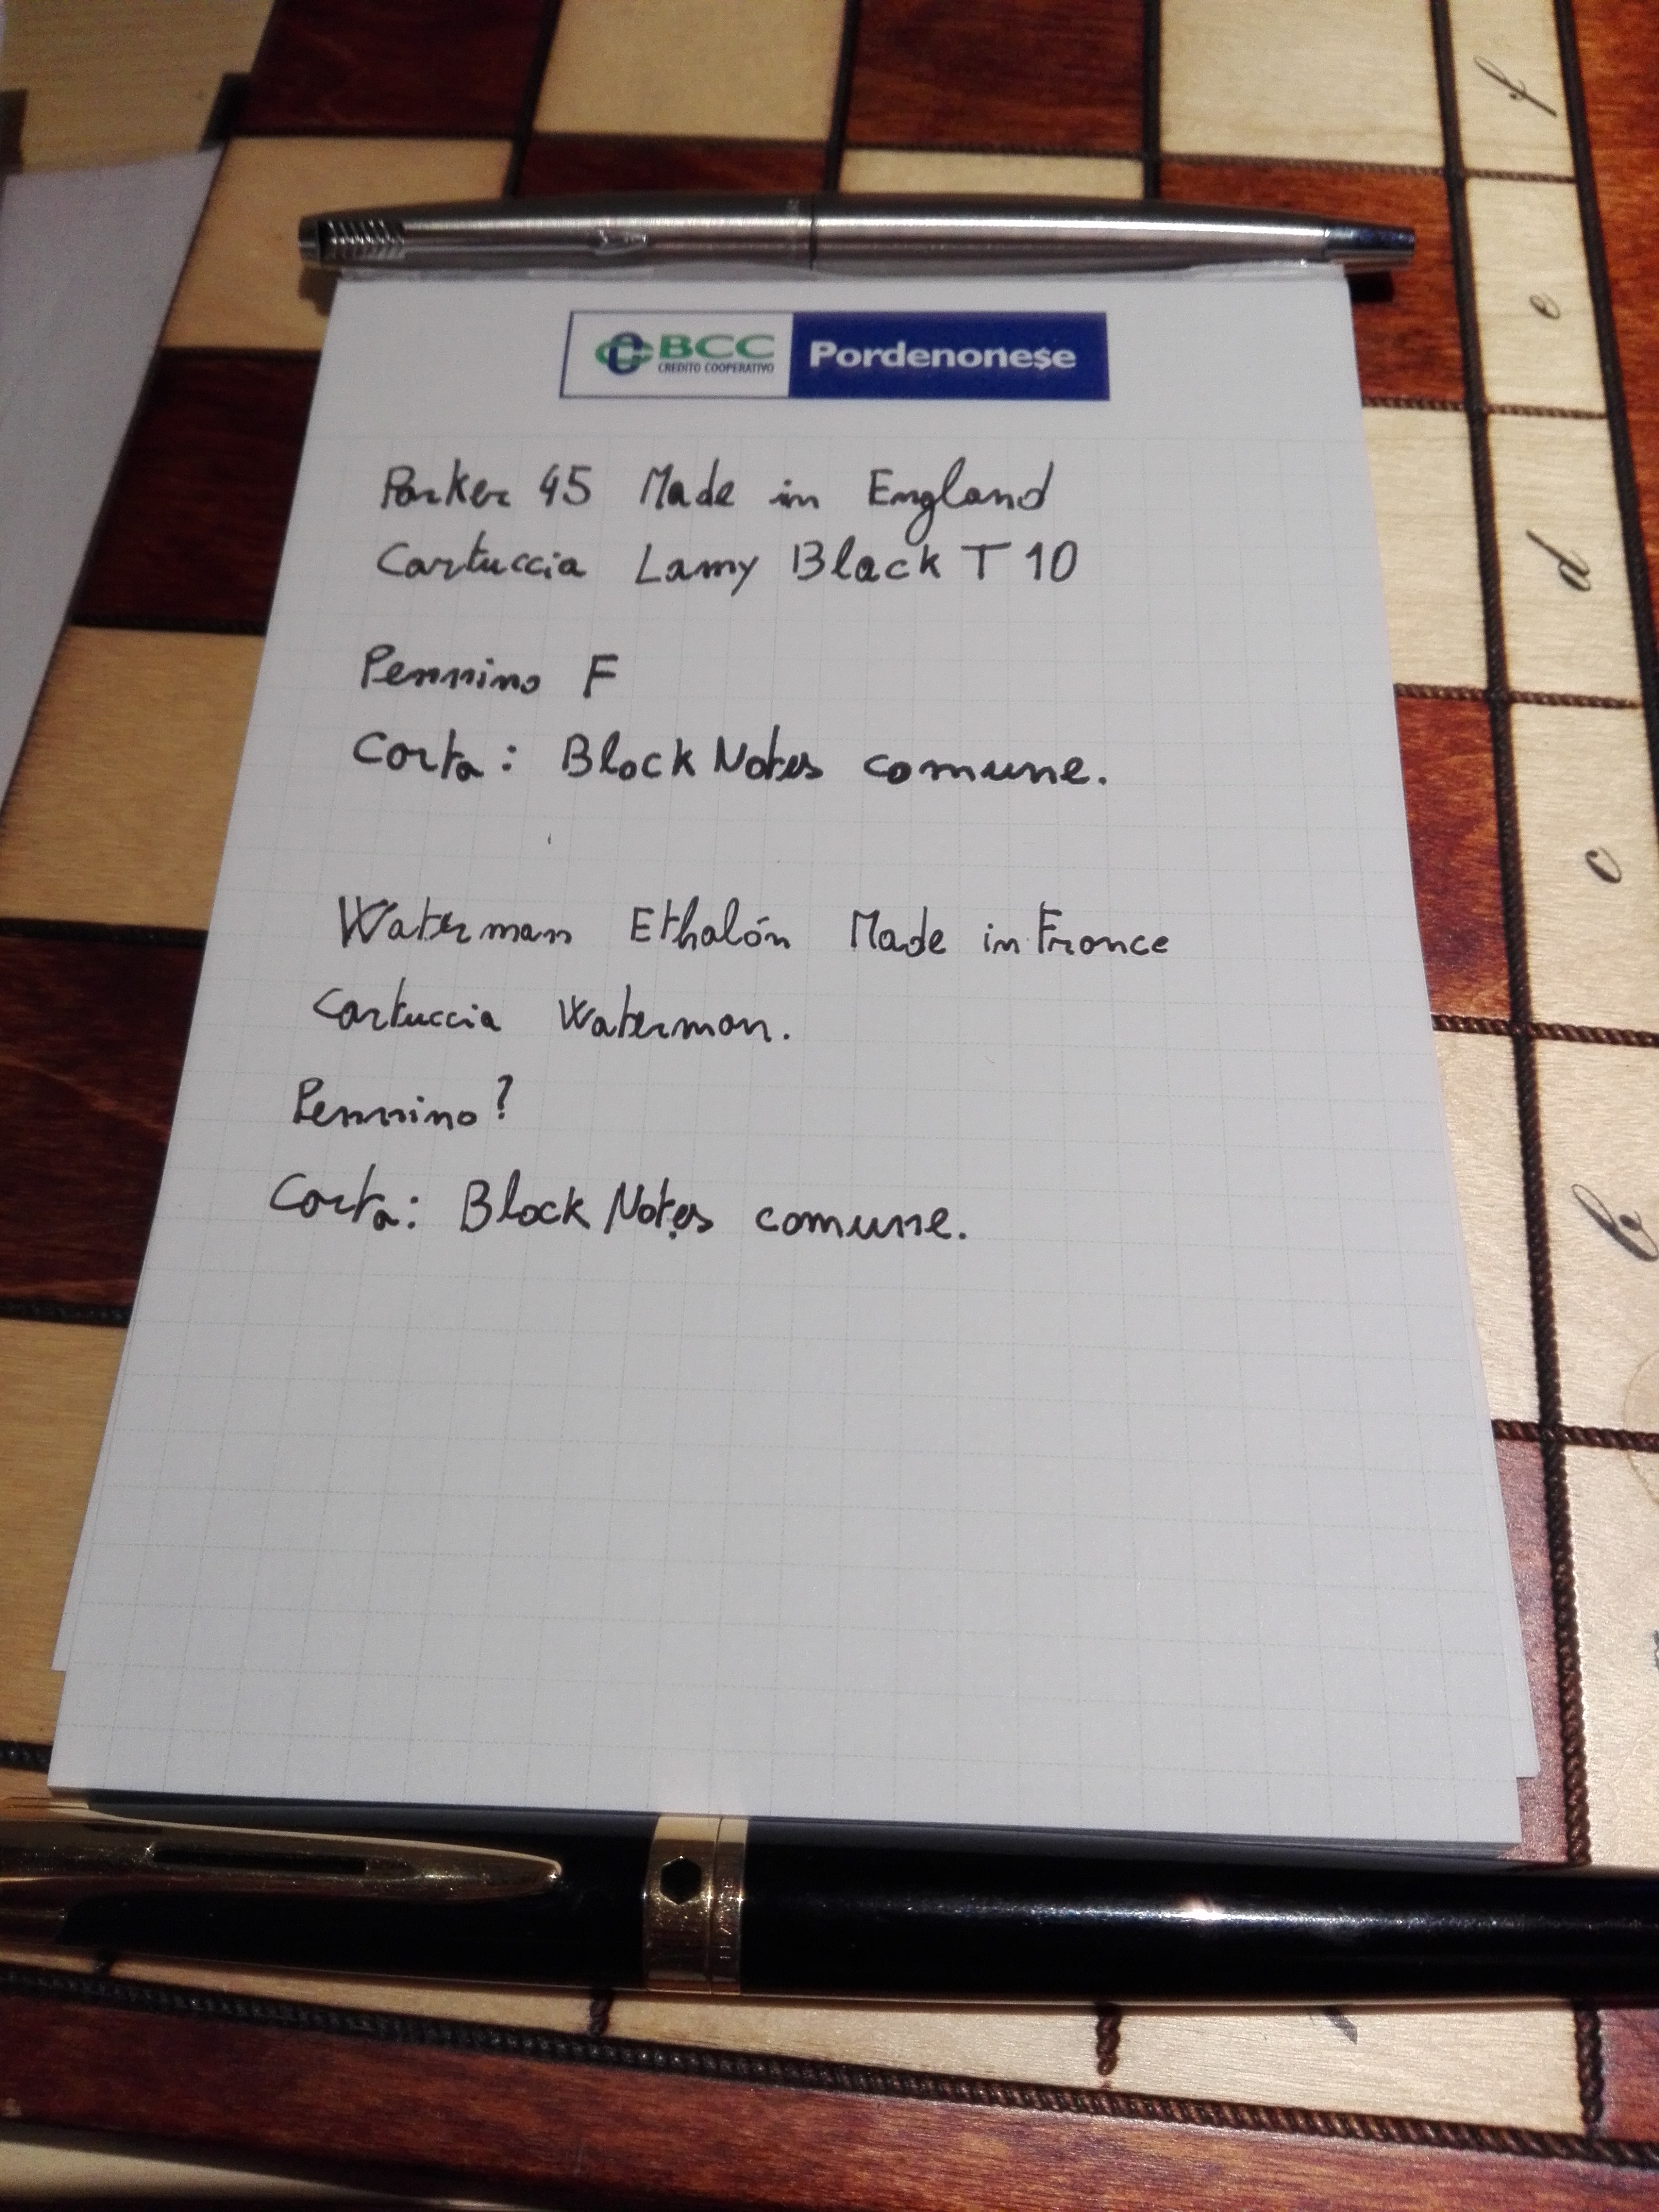 BCC
CREDITO COOPERATIVO
Pordenonese
Parker 45 Made in England
Cartuccia Lamy Black T 10
Pennino F
Carta: Block Notes comune.
Waterman Ethalón Made in France
Cartuccia Waterman.
Pennino?
Carta: Block Notes comune.
f
e
d
c
b